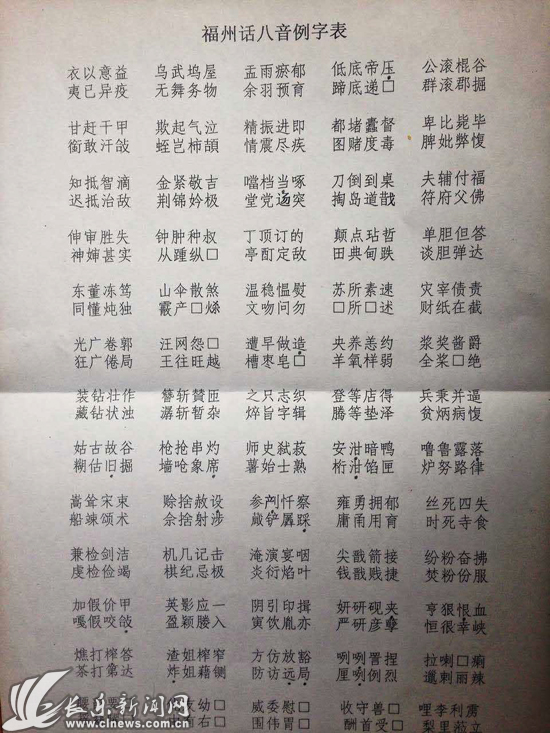 福州话八音例字表
衣以意益 乌武坞屋 盂雨瘀郁 低底帝压 公滚棍谷
夷已异疫 无舞务物 余羽预育 蹄底递□ 群滚郡掘
甘赶干甲 欺起气泣 精振进即 都堵蠹督 卑比毙毕
衔敢汗敆 蛭岂柿頡 情震尽疾 图赌度毒 脾妣弊愎
知抵智滴 金紧敬吉 噹档当啄 刀倒到桌 夫辅付福
迟抵治敌 荆锦妗极 堂党荡突 掏岛道戥 符府父佛
伸审胜失 钟肿种叔 丁顶订的 颠点玷哲 单胆但答
神婶甚实 从踵纵□ 亭酊定敌 田典甸跌 谈胆弹达
东董冻笃 山伞散煞 温稳愠熨 苏所素速 灾宰债责
同懂炖独 霰产□煠 文吻问勿 □所□述 财纸在截
光广卷郭 汪网怨□ 遭早做造 央养恙约 浆奖酱爵
狂广倦局 王往旺越 槽枣皂□ 羊氧样弱 全桨□绝
装钻壮作 簪斩赞匝 之只志织 登等店得 兵秉并逼
藏钻状浊 潺斩暂杂 糍旨字辑 腾等垫泽 贫炳病愎
姑古故谷 枪抢串灼 师史弑菽 安泔暗鸭 噜鲁露落
糊估旧掘 墙呛象席 薯始士熟 桁泔馅匣 炉努路律
嵩耸宋束 赊捨赦设 参刿忏察 雍勇拥郁 丝死四失
船竦颂术 佘捨射涉 蕆铲羼踩 庸甬用育 时死寺食
兼检剑洁 机几记击 淹演宴咽 尖戬箭接 纷粉奋拂
虔检俭竭 棋纪忌极 炎衍焰叶 钱戬贱捷 焚粉份服
加假价甲 英影应一 阴引印揖 妍研砚夹 亨狠恨血
嘎假咬敆 盈颖媵入 寅饮胤亦 严研彦孽 恒很幸峡
燋打榨答 渣姐榨窄 方仿放豁 咧咧詈捏 拉喇□痢
茶打第达 炸姐藉铡 防访远局 厘咧例烈 邋剌丽辣
幼□ 威委慰□ 收守兽□ 哩李利雳
右□ 围伟胃□ 酬首受□ 梨里莅立
长乐新闻网
www.clnews.com.cn